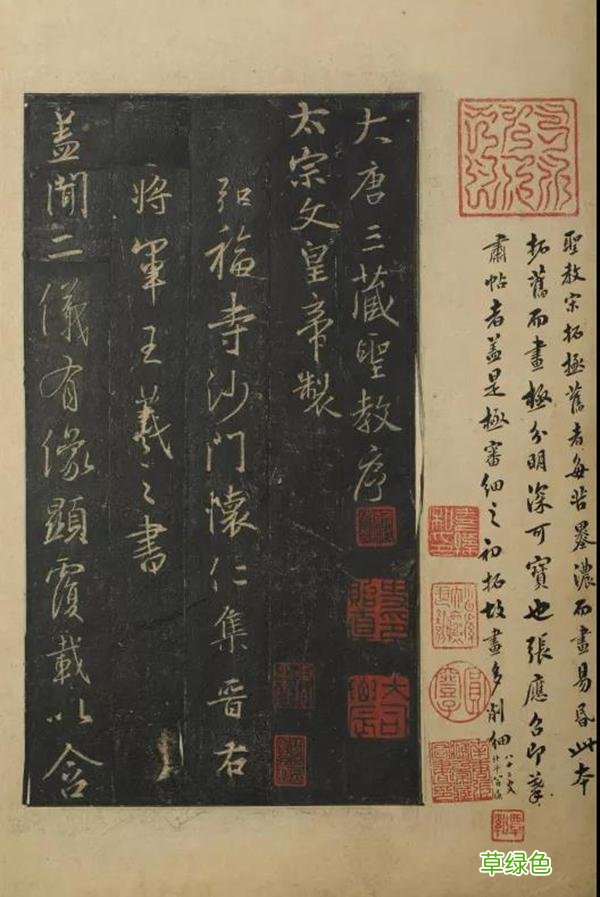 聖教宋拓極舊者每苦墨濃而畫易昏此本
拓舊而畫極分明深可寶也張應召印摹
肅帖者蓋是極審細之初拓故畫多削細
大唐三藏聖教序
太宗文皇帝製
弘福寺沙門懷仁集晉右
將軍王羲之書
蓋聞二儀有像顯覆載以含
草绿色